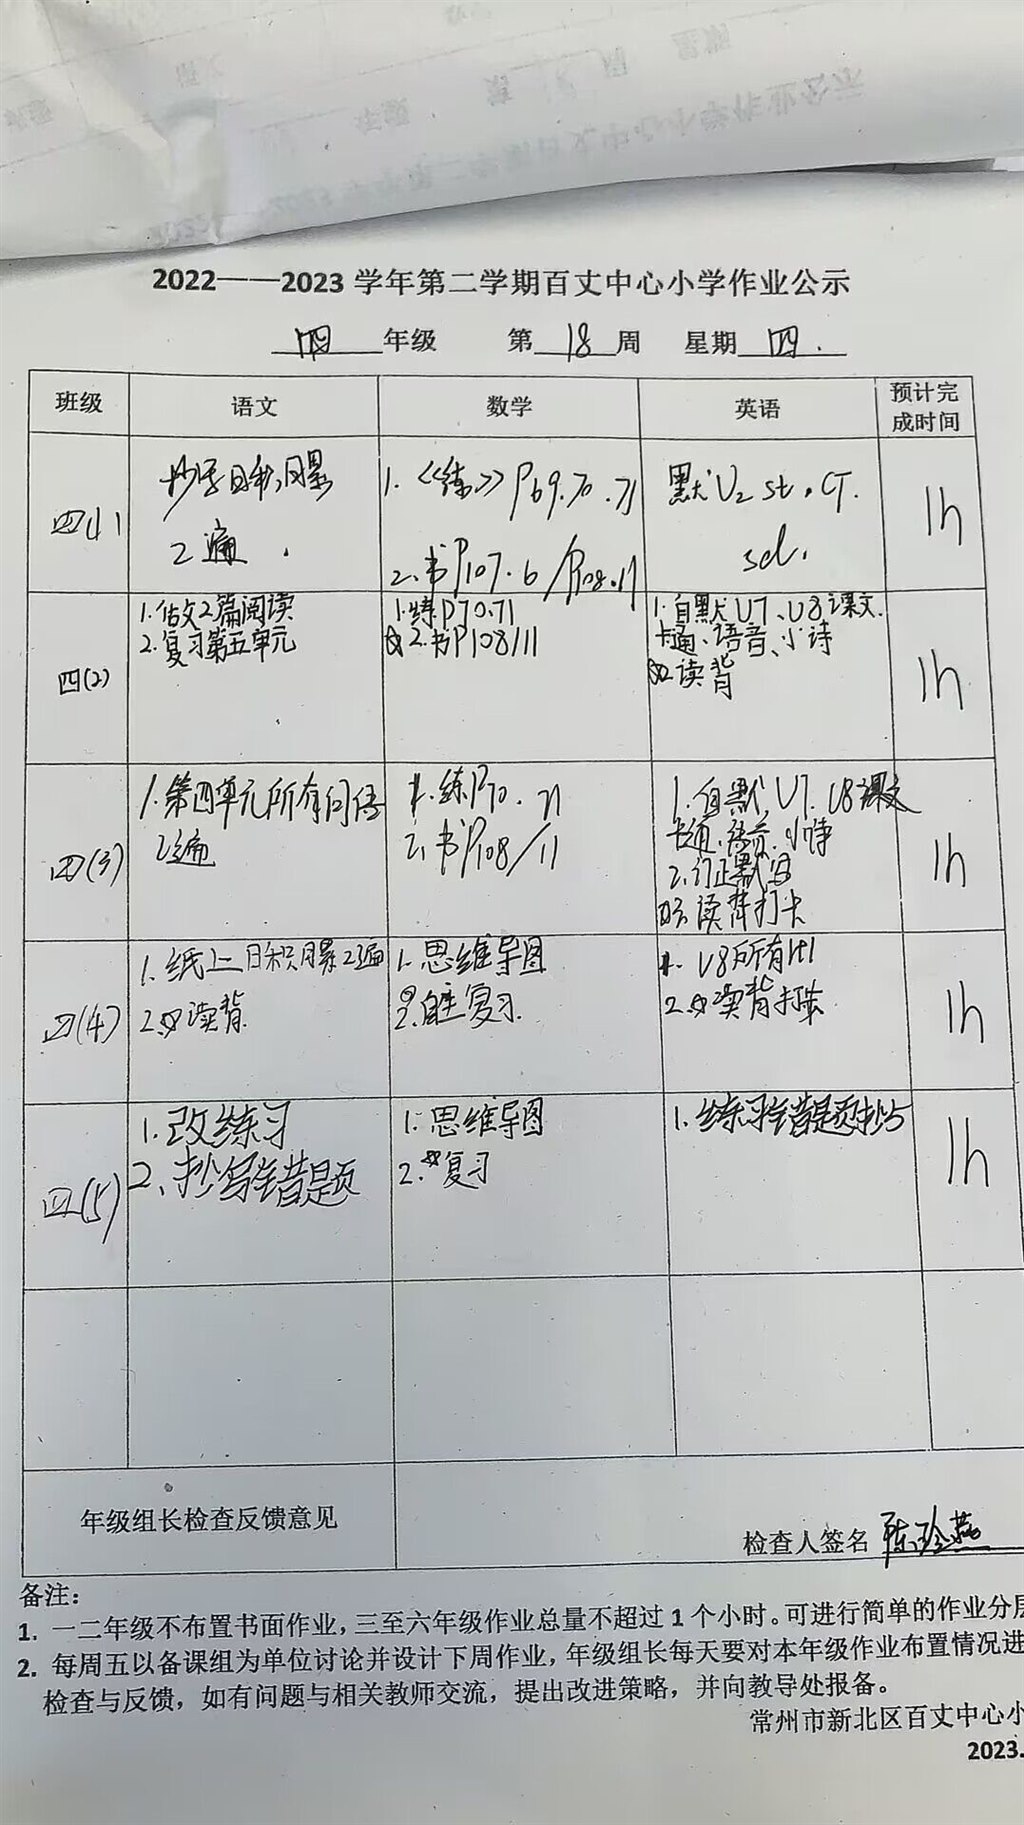 2022——2023 学年第二学期百丈中心小学作业公示
四 年级 第 18 周 星期 四.
班级 语文 数学 英语 预计完
成时间
四(1) 抄写日积月累
2遍.
1.《练》P69.70.71
2.书P107.6/P108.11
默U2 st, CT.
sd.
1h
四(2)
1.估文2篇阅读
2.复习第五单元
1.练P70.71
☆2.书P108/11
1.自默U7、U8课文.
卡通、语音、小诗
☆2.读背
1h
四(3)
1.第四单元所有词语
2遍
1.练P70.71
2.书P108/11
1.自默U7.U8课文
卡通.语音.小诗
2.订正默写
3.读背打卡
1h
四(4)
1.纸上日积月累2遍
2.☆读背
1.思维导图
2.自主复习.
1.U8所有
2.☆读背
1h
四(5)
1.改练习
2、抄写错题
1.思维导图
2.☆复习
1.练习错题抄
1h
年级组长检查反馈意见
检查人签名 陈玲燕
备注:
1. 一二年级不布置书面作业,三至六年级作业总量不超过 1 个小时。可进行简单的作业分层
2. 每周五以备课组为单位讨论并设计下周作业,年级组长每天要对本年级作业布置情况进
检查与反馈,如有问题与相关教师交流,提出改进策略,并向教导处报备。
常州市新北区百丈中心小
2023.